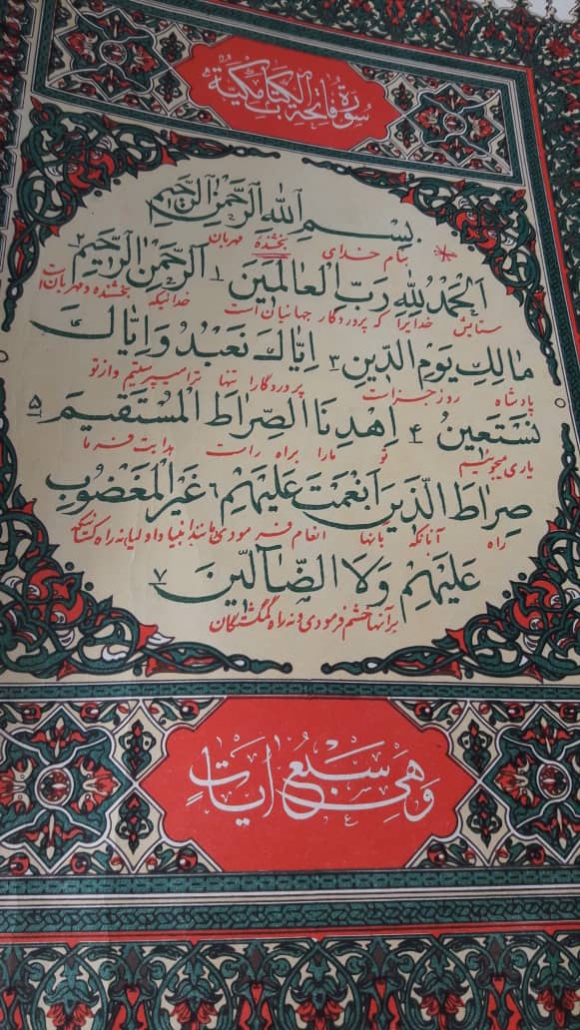 سورة فاتحة الكتاب مكية
بِسْمِ اللهِ الرَّحْمٰنِ الرَّحِيمِ
بنام خدای بخشنده مهربان
اَلْحَمْدُ لِلّٰهِ رَبِّ الْعٰالَمِينَ ١ اَلرَّحْمٰنِ الرَّحِيمِ ٢
ستایش خدایرا که پروردگار جهانیان است خدائیکه بخشنده و مهربان است
مٰالِكِ يَوْمِ الدِّينِ ٣ اِيّٰاكَ نَعْبُدُ وَاِيّٰاكَ
پادشاه روز جزاست پروردگارا تنها ترا میپرستیم و از تو
نَسْتَعِينُ ٤ اِهْدِنَا الصِّرٰاطَ الْمُسْتَقِيمَ ٥
یاری میجوئیم تو ما را براه راست هدایت فرما
صِرٰاطَ الَّذِينَ اَنْعَمْتَ عَلَيْهِمْ ٦ غَيْرِ الْمَغْضُوبِ
راه آنانکه بآنها انعام فرمودی مانند انبیا و اولیا نه راه کسانیکه
عَلَيْهِمْ وَلَا الضّٰآلِّينَ ٧
بر آنها خشم فرمودی و نه راه گمگشتگان
وَهِيَ سَبْعُ اٰيٰاتٍ